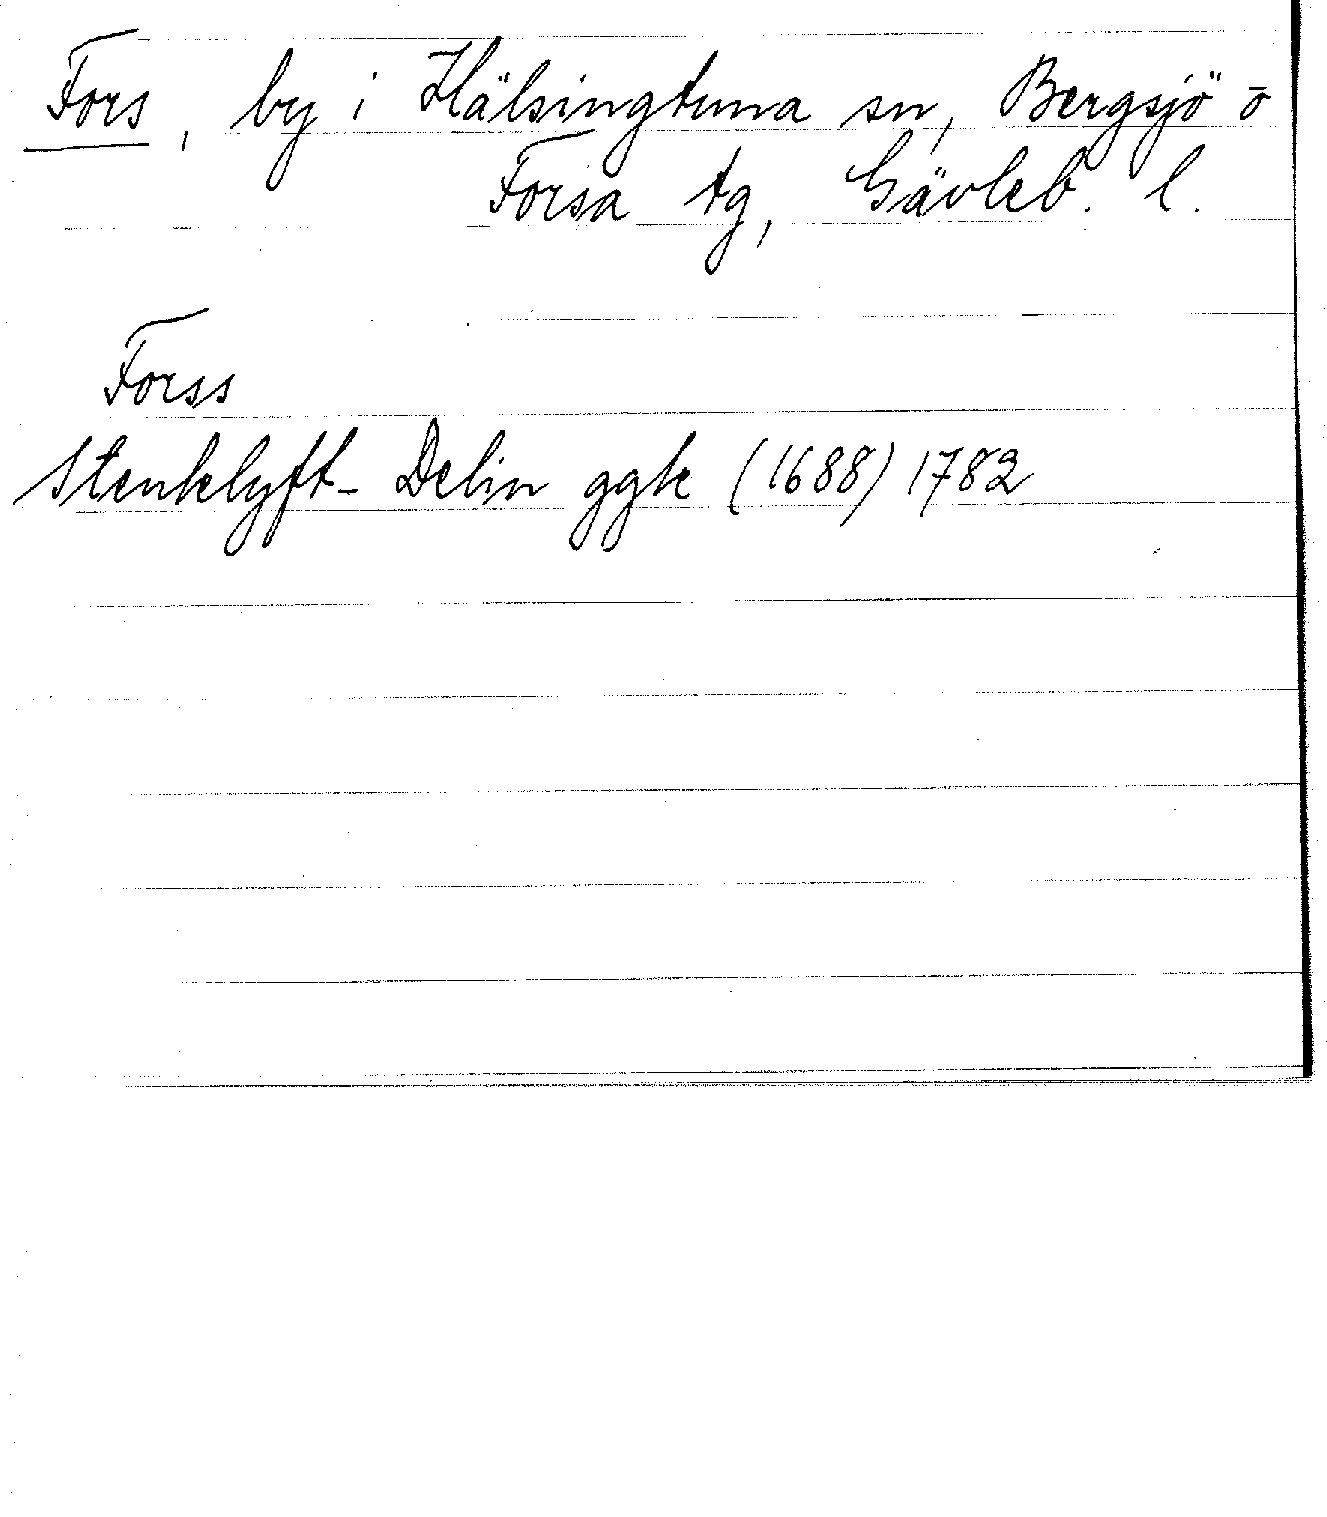 Fors, by i Hälsingtuna sn, Bergsjö o
Forsa tg, Gävleb. l.
Forss
Stenklyft- Delin ggk (1688) 1782